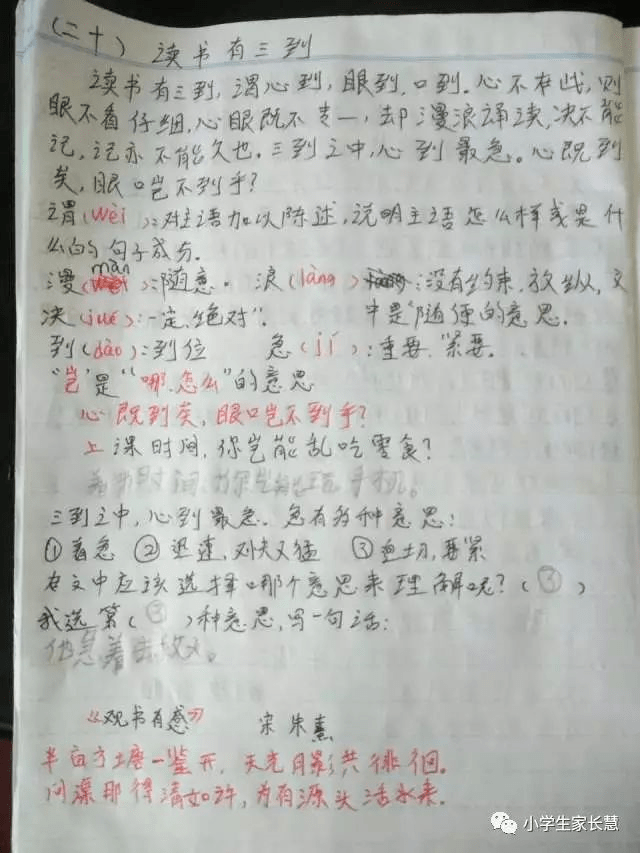 (二十) 读书有三到
读书有三到,谓心到,眼到,口到。心不在此,则
眼不看仔细,心眼既不专一,却漫浪诵读,决不能
记,记亦不能久也。三到之中,心到最急。心既到
矣,眼口岂不到乎?
谓(wèi):对主语加以陈述,说明主语怎么样或是什
么的句子成分。
漫(màn):随意。 浪(làng):没有约束,放纵,文
决(jué):一定,绝对”。 中是“随便的意思.
到(dào):到位 急(jí):重要.紧要.
“岂”是“哪.怎么”的意思
心既到矣,眼口岂不到乎?
上课时间,你岂能乱吃零食?
看书时间,你岂能玩手机。
三到之中,心到最急.急有多种意思:
①着急 ②迅速,又猛 ③迫切,要紧
在文中应该选择哪个意思来理解呢?(③)
我选第(③)种意思,写一句话:
他急着去
《观书有感》 宋 朱熹
半亩方塘一鉴开,天光月影共徘徊。
问渠那得清如许,为有源头活水来.
小学生家长慧